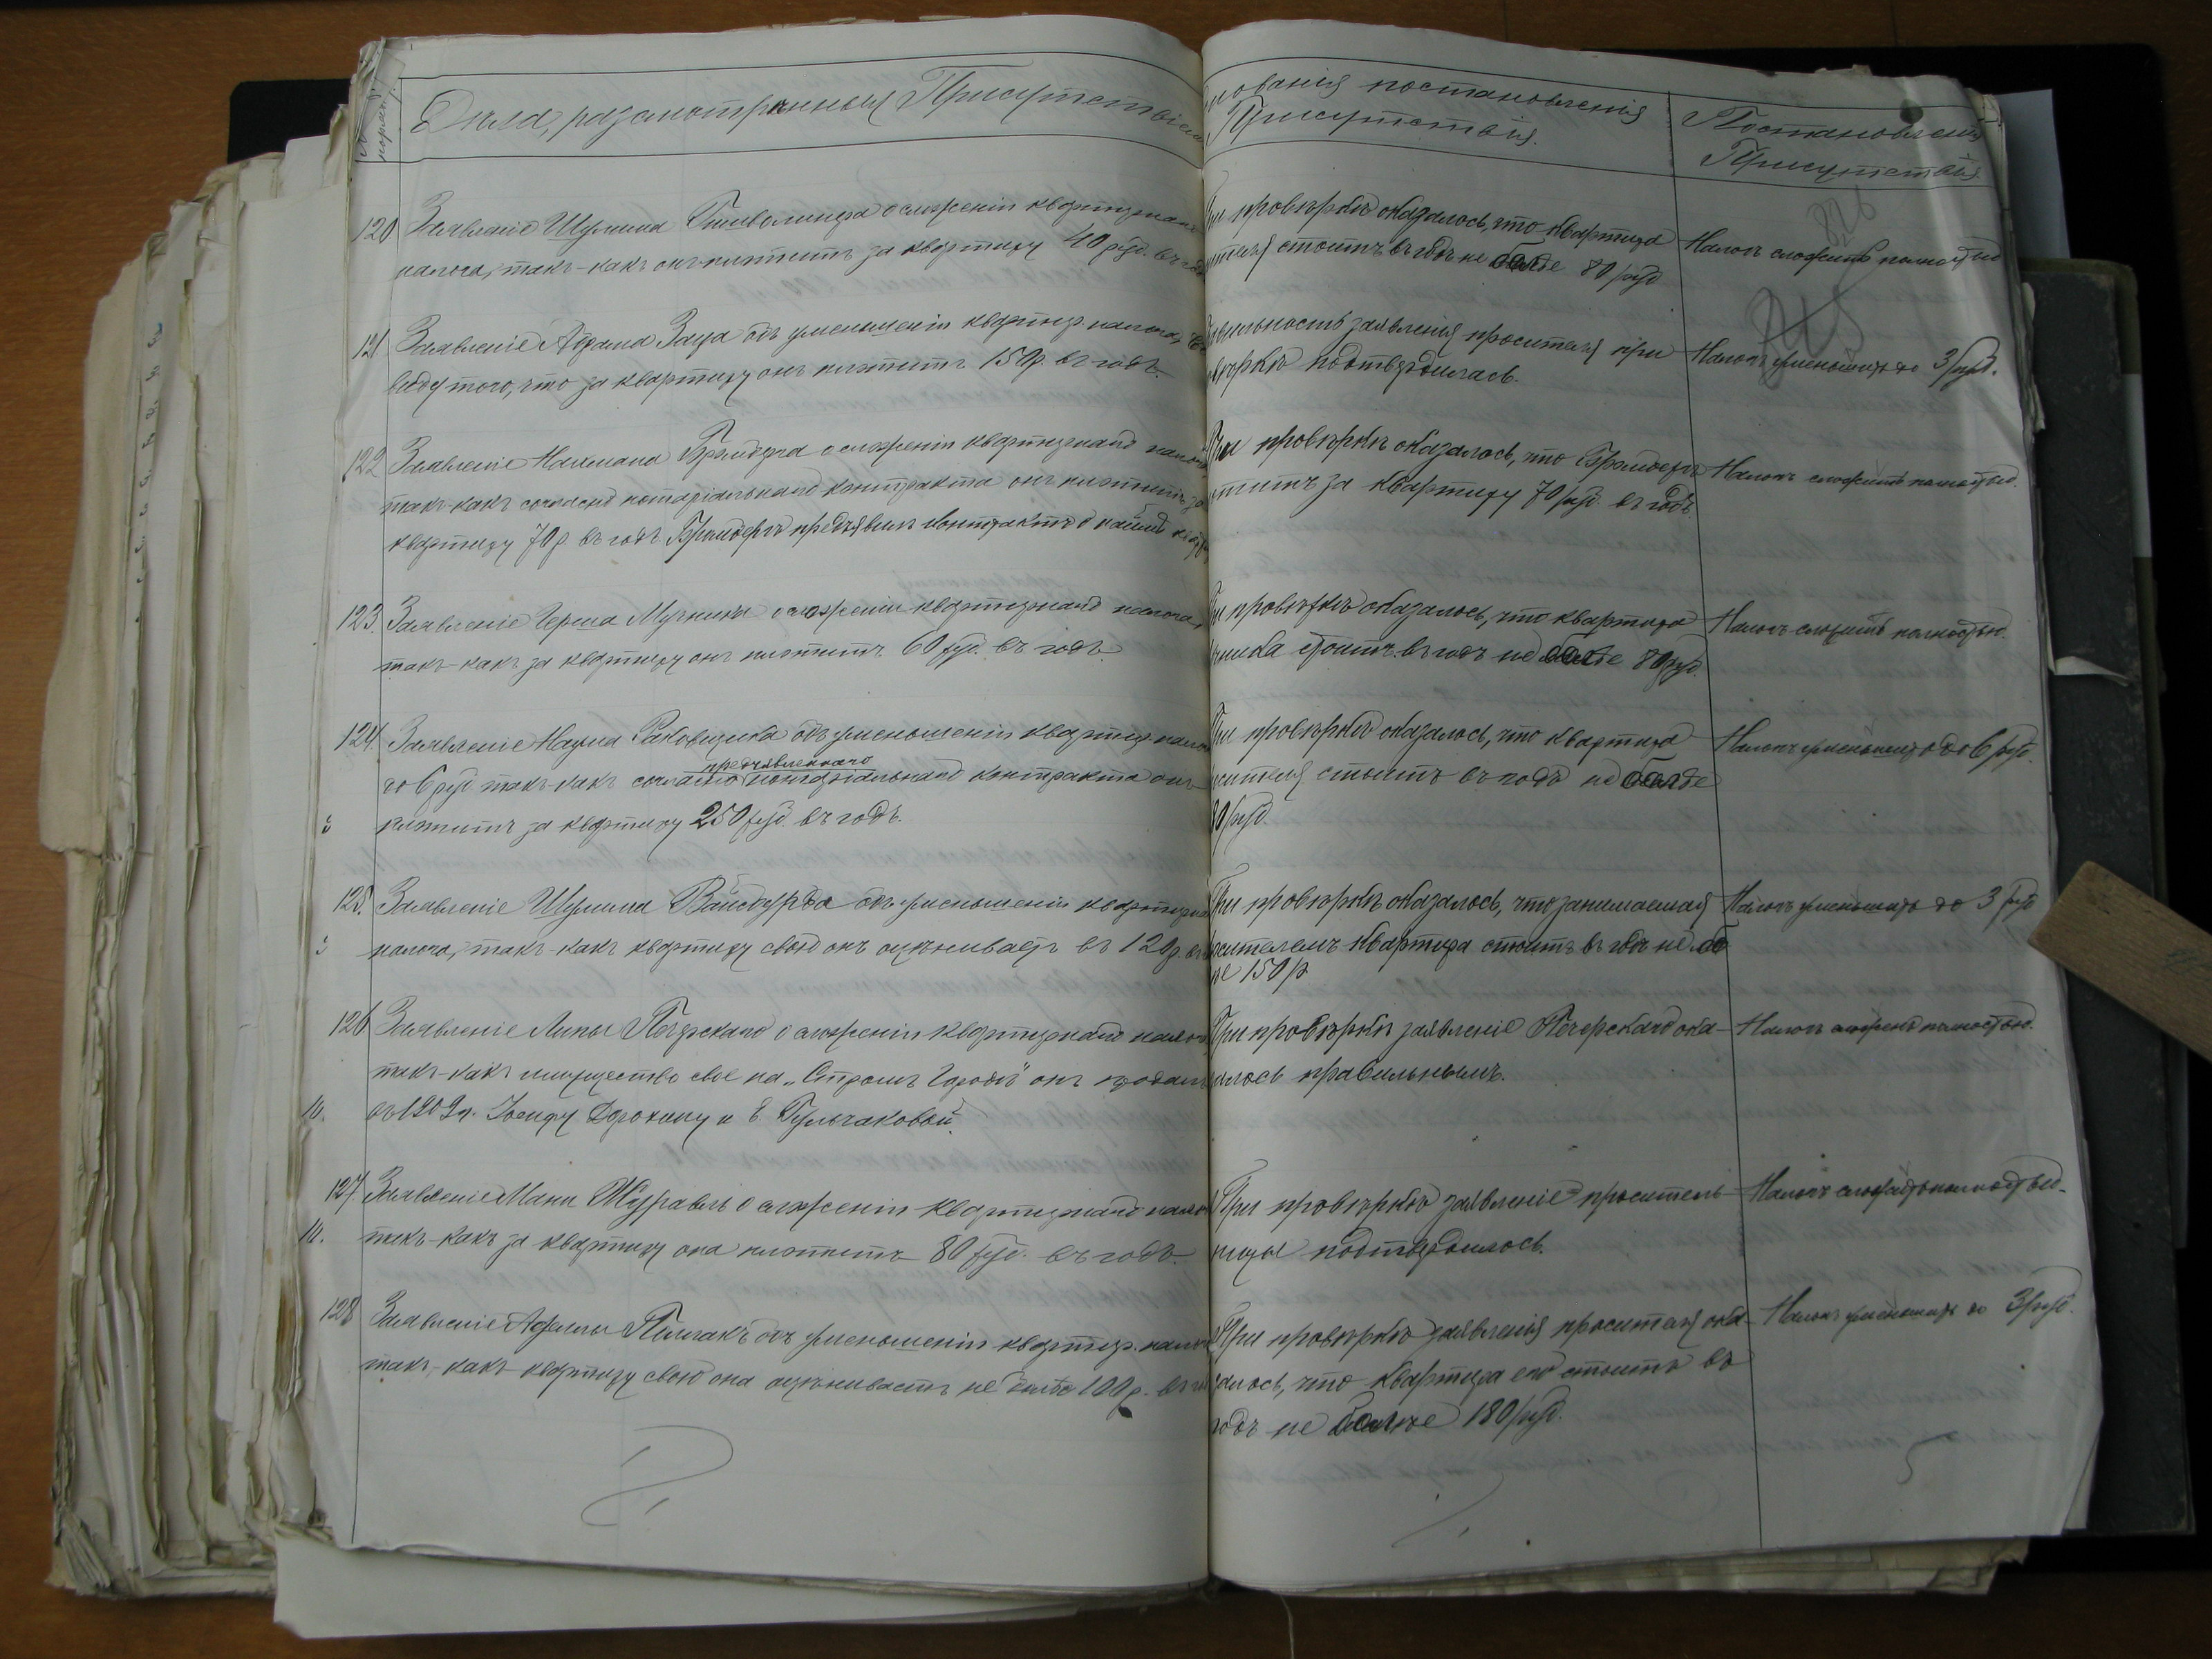 Дѣла, разсмотрѣнныя Присутствіемъ
нованія постановленія
Присутствія.
Постановленія
Присутствія
120 Заявленіе Шулима о сложеніи квартирнаго
налога, такъ-какъ онъ платитъ за квартиру 40 руб. въ годъ
ри провѣркѣ оказалось, что квартира
ителя стоитъ въ годъ не болѣе 80 руб
Налогъ сложить полностью
121 Заявленіе Абрама Заца объ уменьшеніи квартир. налога,
виду того, что за квартиру онъ платитъ 150р. въ годъ.
вильность заявленія просителя при
вѣркѣ подтвердилась.
Налогъ уменьшить до 3 руб.
122 Заявленіе Нахмана о сложеніи квартирнаго налога
такъ-какъ согласно нотаріальнаго контракта онъ платитъ за
квартиру 70 р. въ годъ. предъявилъ контрактъ о найме
При провѣркѣ оказалось, что
атитъ за квартиру 70 руб въ годъ.
Налогъ сложить полностью.
123. Заявленіе Герша Мучника о сложеніи квартирнаго налога,
такъ-какъ за квартиру онъ платитъ 60 руб. въ годъ.
ри провѣркѣ оказалось, что квартира
чника стоитъ въ годъ не болѣе 80 руб.
Налогъ сложить полностью.
124. Заявленіе Наума Раковщика объ уменьшеніи квартир. нало
предъявленнаго
до 6 руб. такъ-какъ согласно нотаріальнаго контракта онъ
платитъ за квартиру 250 руб. въ годъ.
При провѣркѣ оказалось, что квартира
сителя стоитъ въ годъ не болѣе
80 руб.
Налогъ уменьшить до 6 руб.
125. Заявленіе Шулима Вайсбурда объ уменьшеніи квартирна
налога, такъ-какъ квартиру свою онъ оцѣниваетъ въ 120 р. въ
При провѣркѣ оказалось, что занимаемая
сителемъ квартира стоитъ въ годъ не бо
лѣе 150 р
Налогъ уменьшить до 3 руб
126 Заявленіе Липы Печерскаго о сложеніи квартирнаго налог
такъ-какъ имущество свое на „Старомъ Городѣ" онъ продалъ
въ 1909 г. Дорохину и Е. Гульчаковой.
При провѣркѣ заявленіе Печерскаго ока-
залось правильнымъ.
Налогъ сложить полностью.
127 Заявленіе Мани Журавль о сложеніи квартирнаго налог
такъ-какъ за квартиру она платитъ 80 руб. въ годъ.
При провѣркѣ заявленіе проситель-
ницы подтвердилось.
Налогъ сложить полностью.
128 Заявленіе Адели Полчакъ объ уменьшеніи квартир. налог
такъ-какъ квартиру свою она оцѣниваетъ не болѣе 100 р. въ го
При провѣркѣ заявленія просителя ока-
залось, что квартира его стоитъ въ
годъ не болѣе 180 руб.
Налогъ уменьшить до 3 руб.